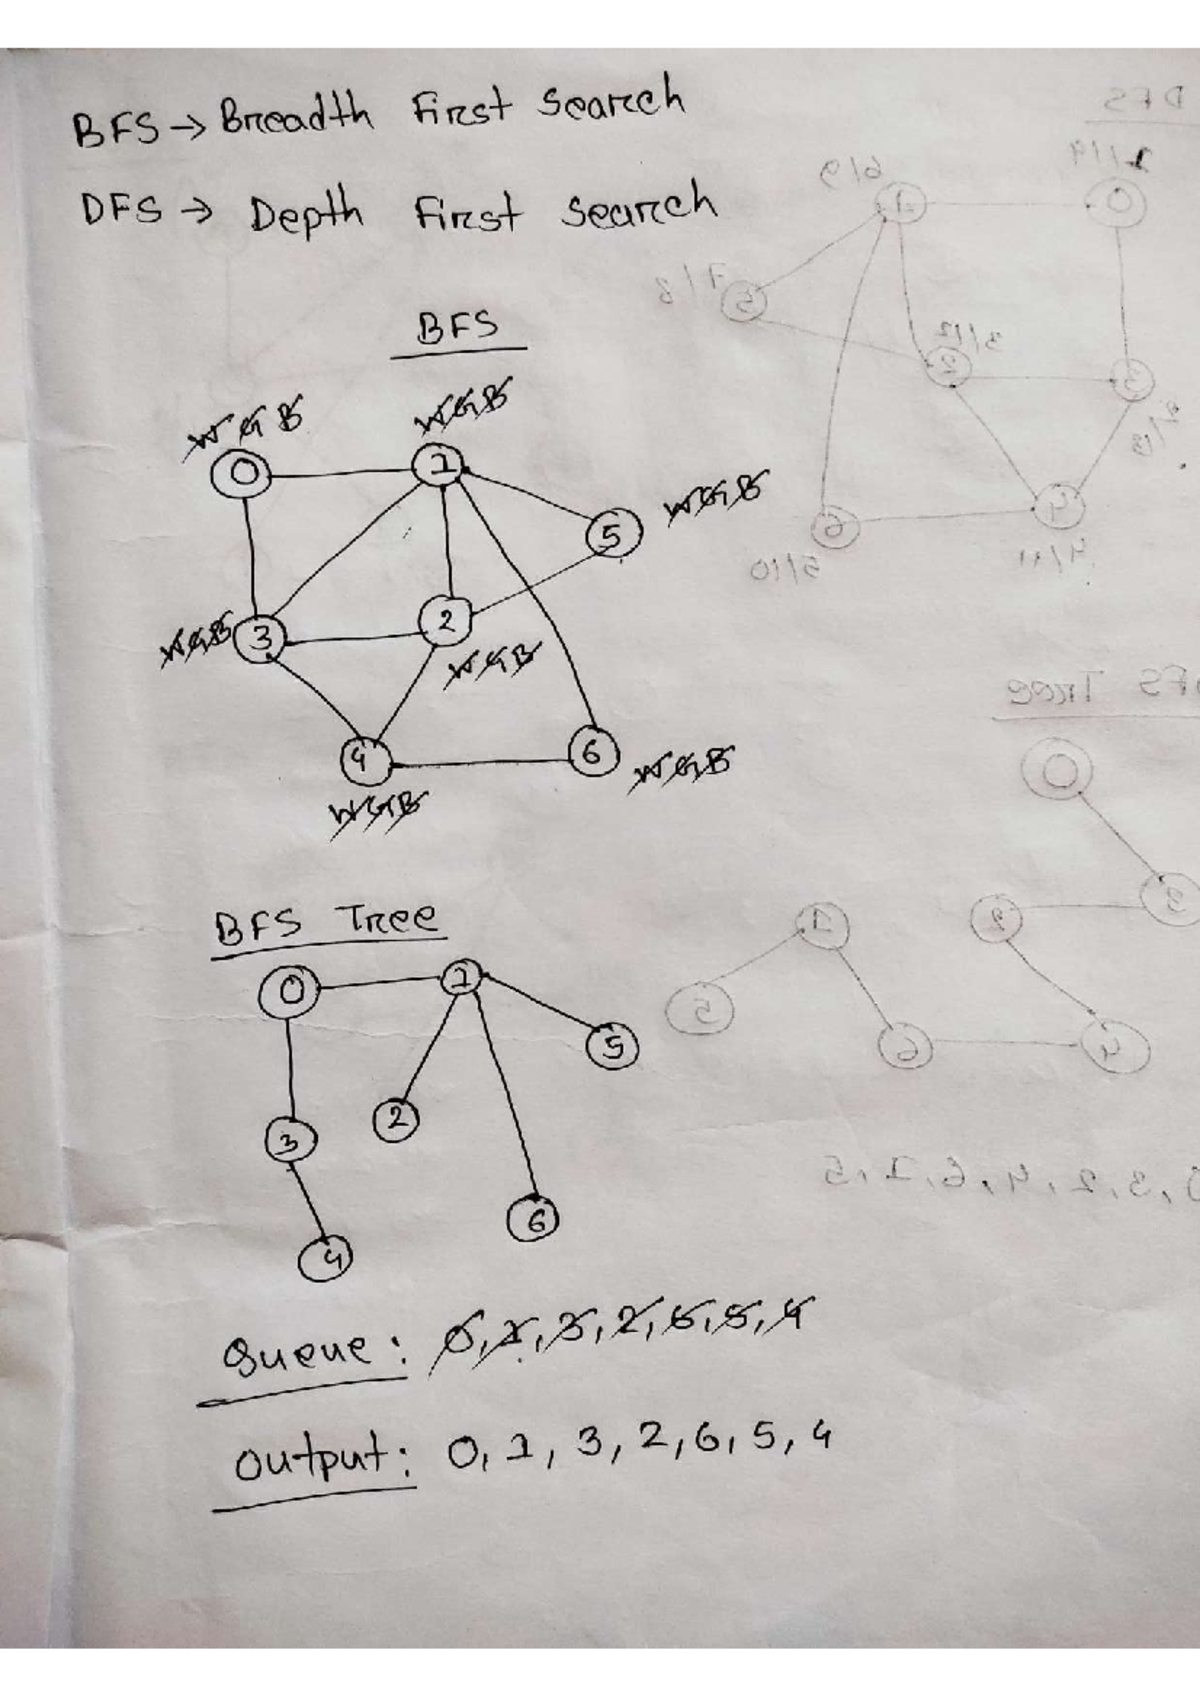 BFS → Breadth First Search
DFS → Depth First Search
BFS
W G B
W G B
0
1
5
W G B
W G B
3
2
W G B
4
6
W G B
W G B
BFS Tree
0
1
5
3
2
6
4
Queue: 0, 1, 3, 2, 6, 5, 4
Output: 0, 1, 3, 2, 6, 5, 4